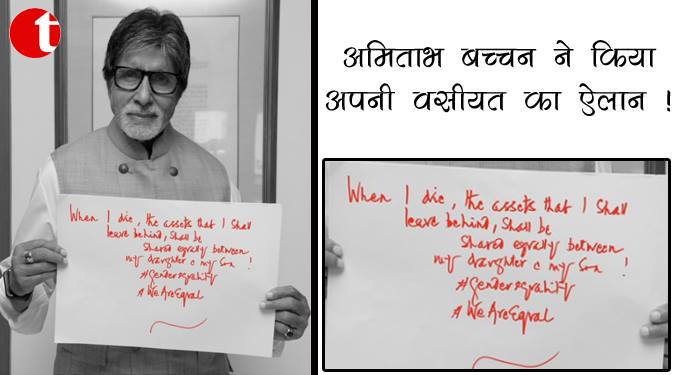 t
अमिताभ बच्चन ने किया
अपनी वसीयत का ऐलान !
When I die, the assets that I shall
leave behind, shall be
shared equally between
my daughter & my son !
#Genderequality
#WeAreEqual
When I die, the assets that I shall
leave behind, shall be
shared equally between
my daughter & my son !
#Genderequality
#WeAreEqual